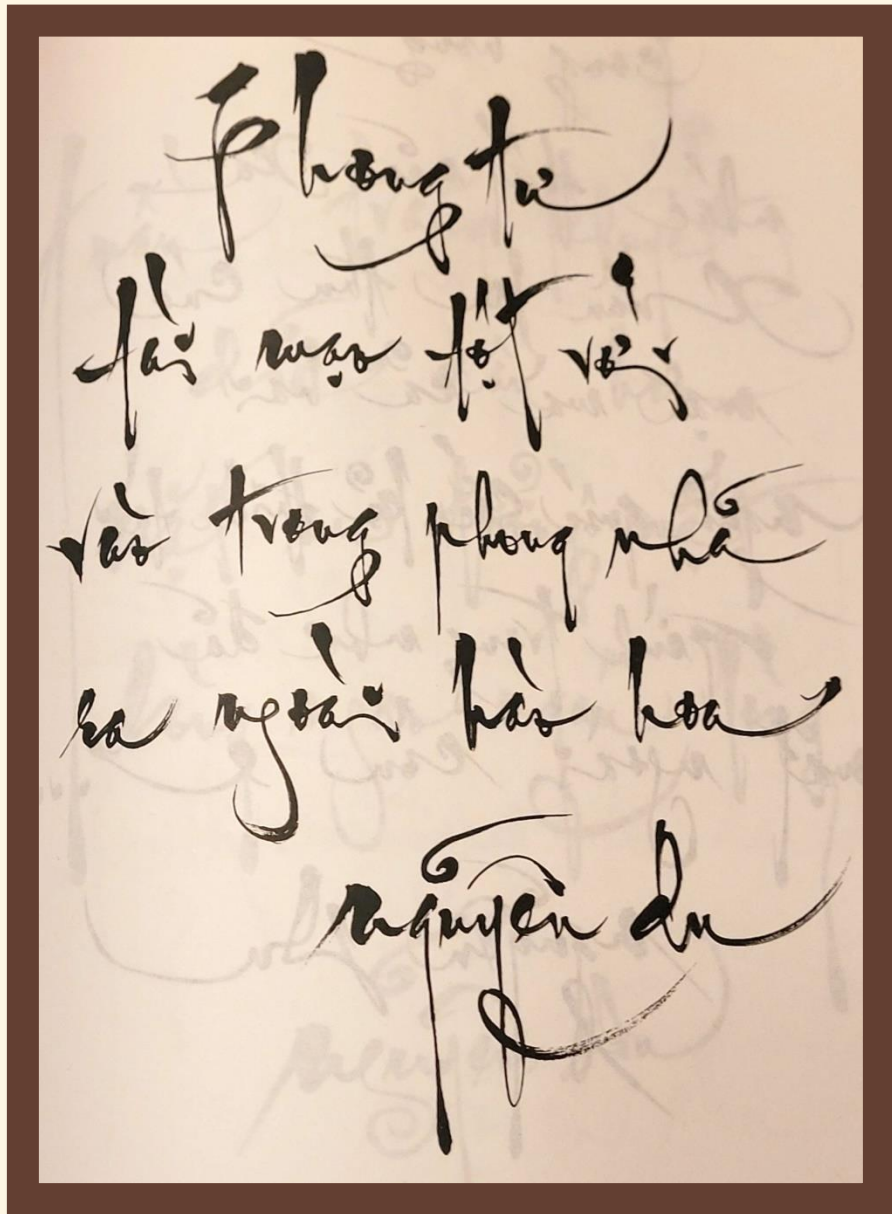 Phong tư
tài mạo tột vời
vào trong phong nhã
ra ngoài hào hoa
nguyễn du